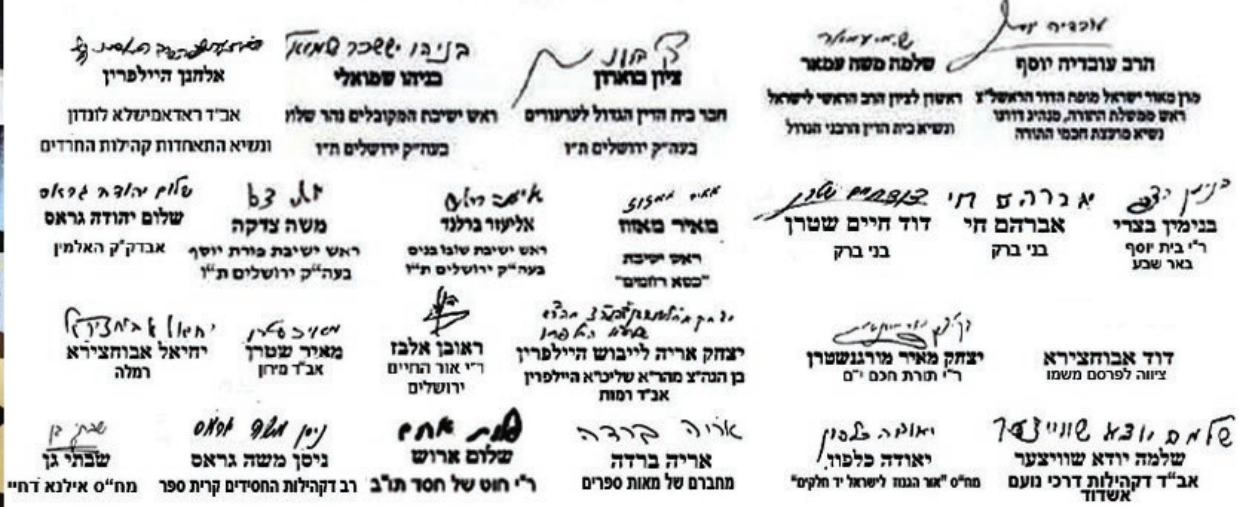 עובדיה יוסף
הרב עובדיה יוסף
מרן מאור ישראל מופת הדור הראשל"צ
ראש ממשלת התורה, מנהיג דורנו
נשיא מועצת חכמי התורה
שלמה משה עמאר
ראשון לציון הרב הראשי לישראל
ונשיא בית הדין הרבני הגדול
ציון בוארון
חבר בית הדין הגדול לערעורים
בעה"ק ירושלים ת"ו
בניהו יששכר שמואלי
בניהו שמואלי
ראש ישיבת המקובלים נהר שלום
בעה"ק ירושלים ת"ו
אלחנן היילפרין
אב"ד ראדאמישלא לונדון
ונשיא התאחדות קהילות החרדים
בנימין בצרי
ר"י בית יוסף
באר שבע
אברהם חי
אברהם חי
בני ברק
דוד חיים שטרן
בני ברק
מאיר מאזוז
מאיר מאזוז
ראש ישיבת
"כסא רחמים"
אליעזר ברלנד
ראש ישיבת שובו בנים
בעה"ק ירושלים ת"ו
משה צדקה
ראש ישיבת פורת יוסף
בעה"ק ירושלים ת"ו
שלום יהודה גראס
שלום יהודה גראס
אבדק"ק האלמין
דוד אבוחצירא
ציווה לפרסם משמו
יצחק מאיר מורגנשטרן
ר"י תורת חכם י-ם
יצחק אריה לייבוש היילפרין
בן הגה"צ מהר"א שליט"א היילפרין
אב"ד רמות
ראובן אלבז
ר"י אור החיים
ירושלים
מאיר שטרן
מאיר שטרן
אב"ד מירון
יחיאל אבוחצירא
יחיאל אבוחצירא
רמלה
שלמה יודא שווייצער
שלמה יודא שוויצער
אב"ד דקהילות דרכי נועם
אשדוד
יאודה כלפון
יאודה כלפון
מח"ס "אור הגנוז לישראל יד חלקים"
אריה ברדה
אריה ברדה
מחברם של מאות ספרים
שלום ארוש
ר"י חוט של חסד תו"ב
ניסן משה גראס
ניסן משה גראס
רב דקהילות החסידים קרית ספר
שבתי גן
שבתי גן
מח"ס אילנא דחיי